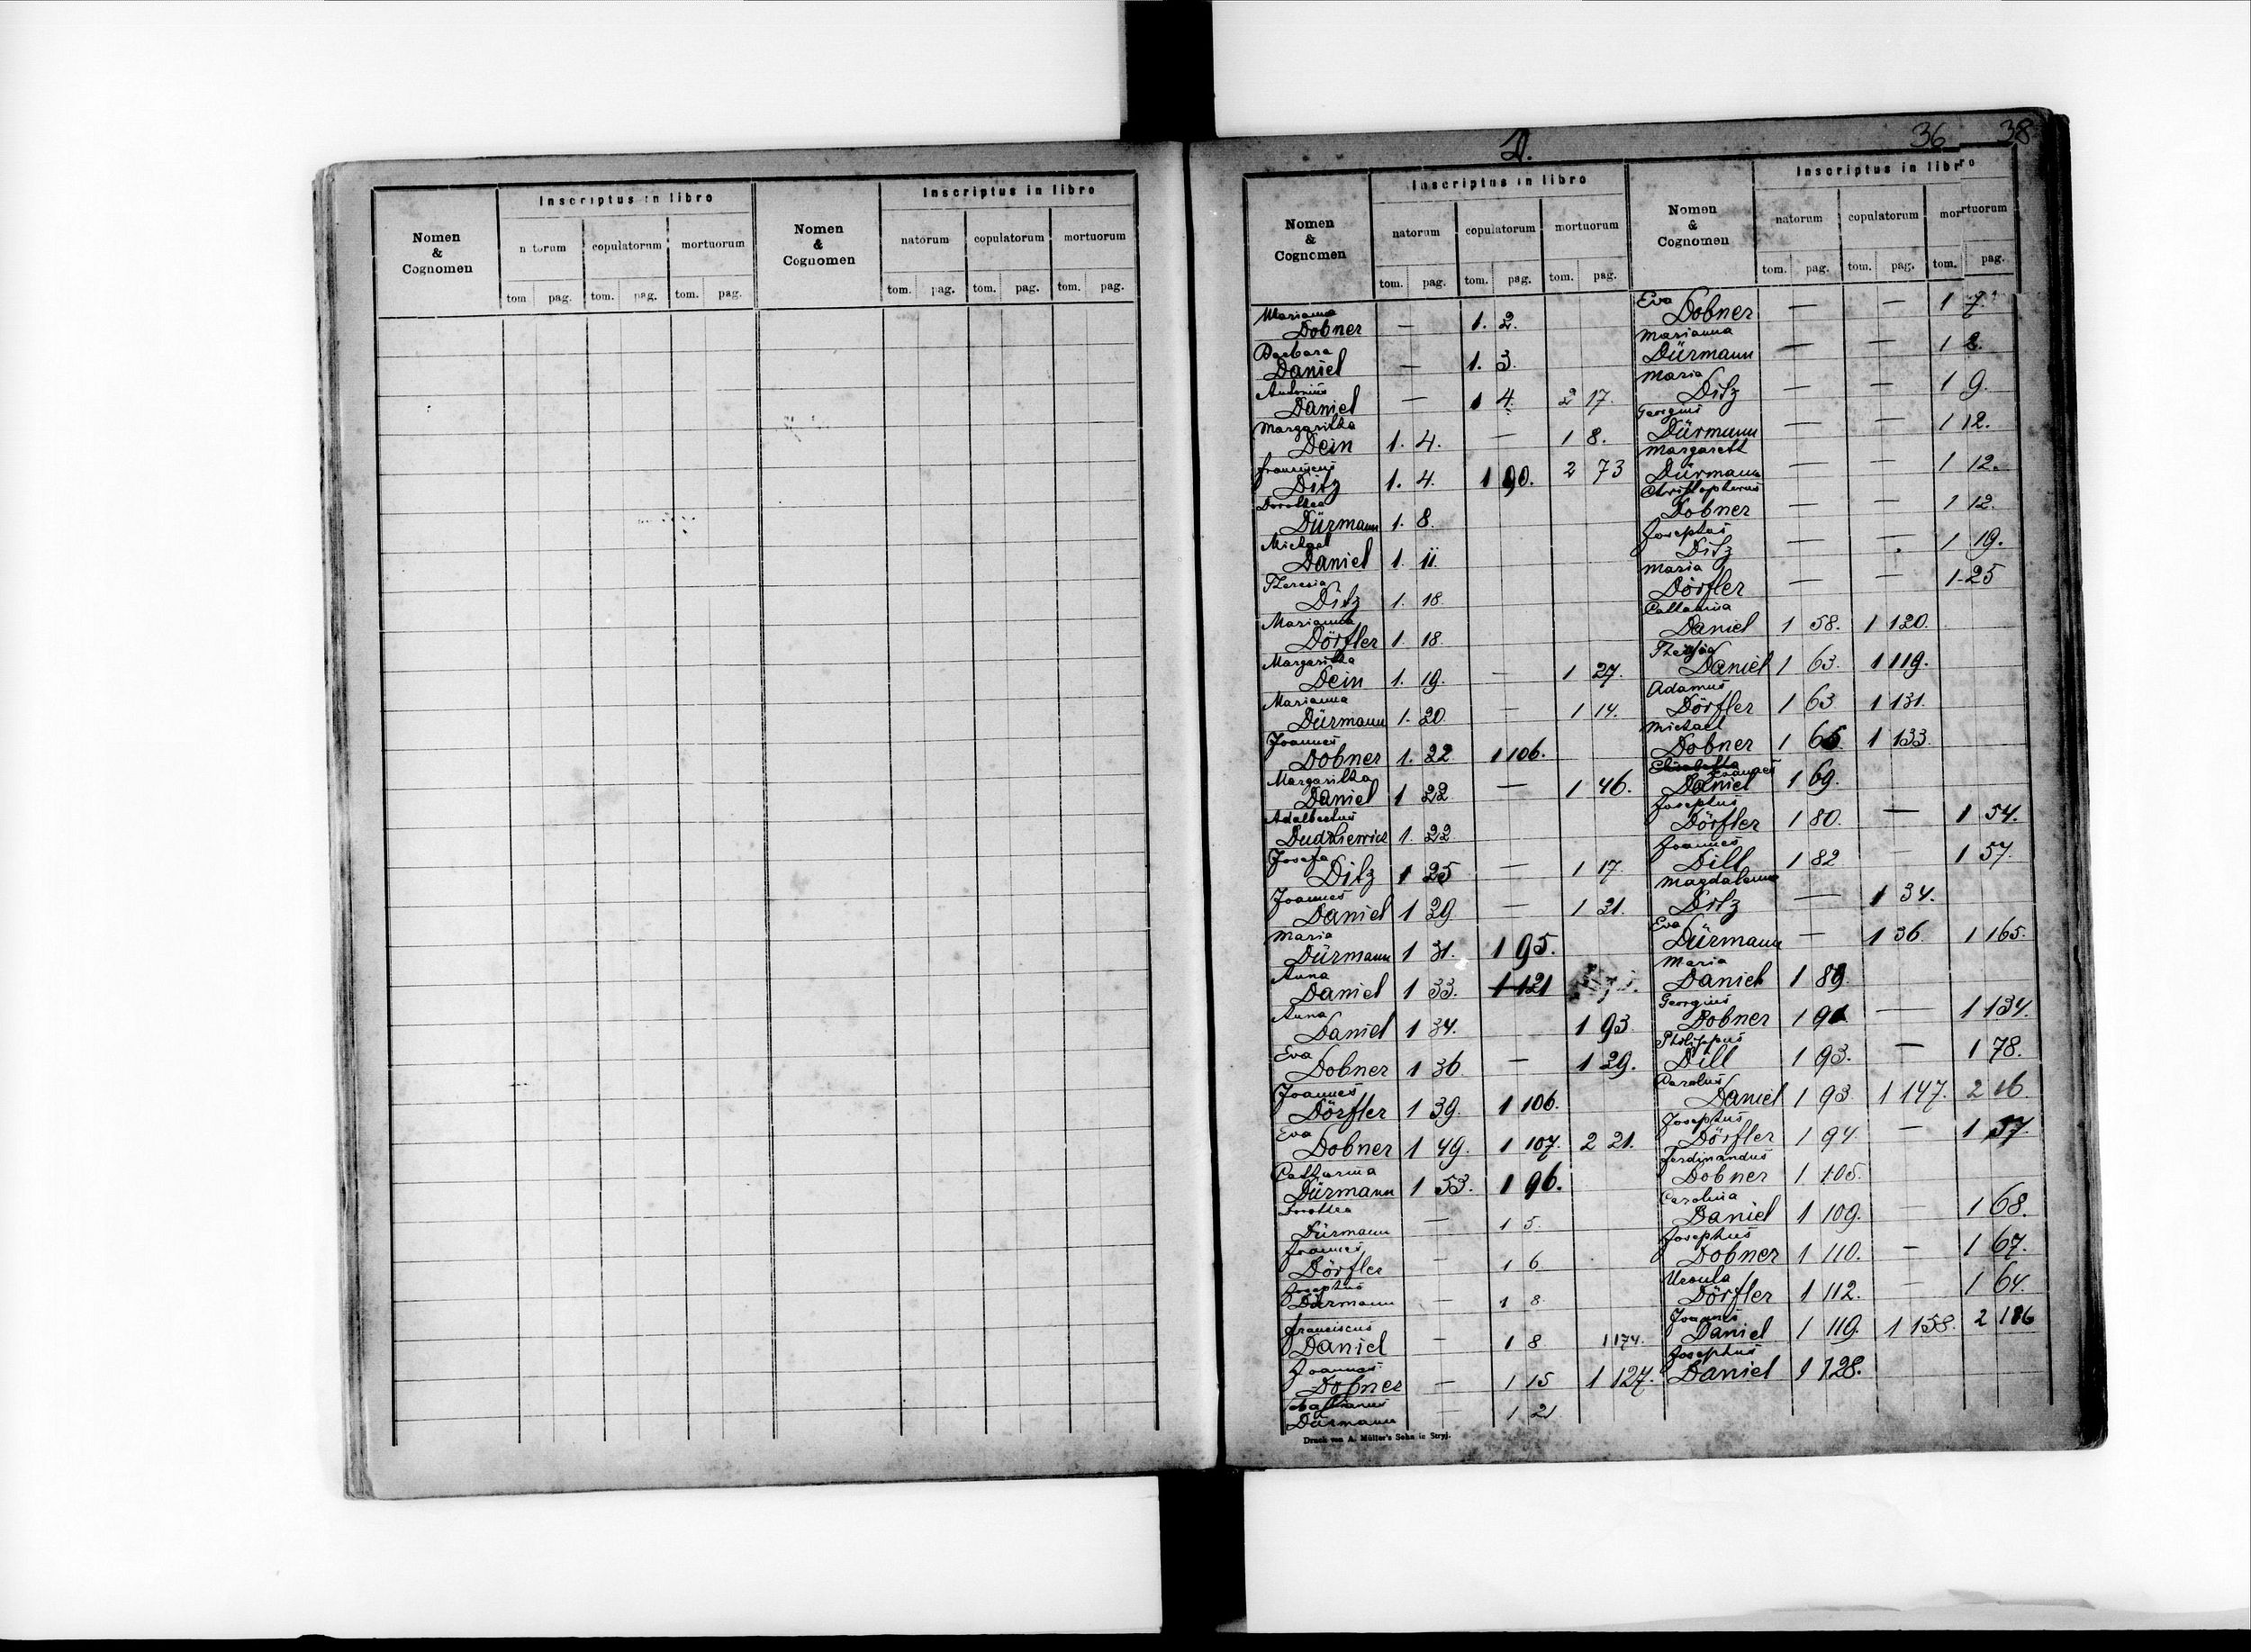 Nomen & Cognomen
Inscriptus in libro
n torum copulatorum mortuorum
tom pag. tom. pag. tom. pag.
Nomen & Cognomen
Inscriptus in libro
natorum copulatorum mortuorum
tom. pag. tom. pag. tom. pag.
D.
36 38
Nomen & Cognomen
Inscriptus in libro
natorum copulatorum mortuorum
tom. pag. tom. pag. tom. pag.
Marianna
Dobner — 1. 2.
Barbara
Daniel — 1. 3.
Antonius
Daniel — 1 4. 2 17.
Margaritha
Dein 1. 4. — 1 8.
Franciscus
Ditz 1. 4. 1 90. 2 73
Dorothea
Dürmann 1. 8.
Michael
Daniel 1. 11.
Theresia
Ditz 1. 18.
Marianna
Dörfler 1. 18.
Margaritha
Dein 1. 19. — 1 27.
Marianna
Dürmann 1. 20. — 1 14.
Joannes
Dobner 1. 22 1 106.
Margaritha
Daniel 1 22 — 1 46.
Adalbertus
Dudkiewicz 1. 22
Josefa
Ditz 1 25 — 1 17.
Joannes
Daniel 1 29 — 1 21.
Maria
Dürmann 1 31. 1 95.
Anna
Daniel 1 33. 1 121
Anna
Daniel 1 34. 1 93
Eva
Dobner 1 36 — 1 29.
Joannes
Dörfler 1 39. 1 106.
Eva
Dobner 1 49. 1 107. 2 21.
Catharina
Dürmann 1 53. 1 96.
Dorothea
Dürmann — 1 5.
Joannes
Dörfler — 1 6.
Josephus
Dürmann — 1 8.
Franciscus
Daniel — 1 8 1 174.
Joannes
Dobner — 1 15 1 127.
Dürmann — 1 21
Druck von A. Müller's Sohn in Stryj.
Nomen & Cognomen
Inscriptus in libro
natorum copulatorum mortuorum
tom. pag. tom. pag. tom. pag.
Eva
Dobner — — 1 7.
Marianna
Dürmann — — 1 2.
Maria
Ditz — — 1 9.
Georgius
Dürmann — — 1 12.
Margareth
Dürmann — — 1 12.
Christophorus
Dobner — — 1 12.
Josephus
Ditz — — 1 19.
Maria
Dörfler — — 1 25
Catharina
Daniel 1 58. 1 120.
Theresia
Daniel 1 63. 1 119.
Adamus
Dörfler 1 63 1 131.
Michael
Dobner 1 65 1 133.
Elisabetha Joannes
Daniel 1 69.
Josephus
Dörfler 1 80. — 1 54.
Joannes
Dill 1 82 — 1 57.
Magdalena
Ditz — 1 34.
Eva
Dürmann — 1 36. 1 165.
Maria
Daniel 1 89.
Georgius
Dobner 1 91 — 1 134.
Philippus
Dill 1 93. — 1 78.
Carolus
Daniel 1 93 1 147. 2 16.
Josephus
Dörfler 1 94. — 1 57.
Ferdinandus
Dobner 1 105.
Carolina
Daniel 1 109. — 1 68.
Josephus
Dobner 1 110. — 1 67.
Ursula
Dörfler 1 112. — 1 64.
Joannes
Daniel 1 119. 1 158. 2 186
Josephus
Daniel 1 128.